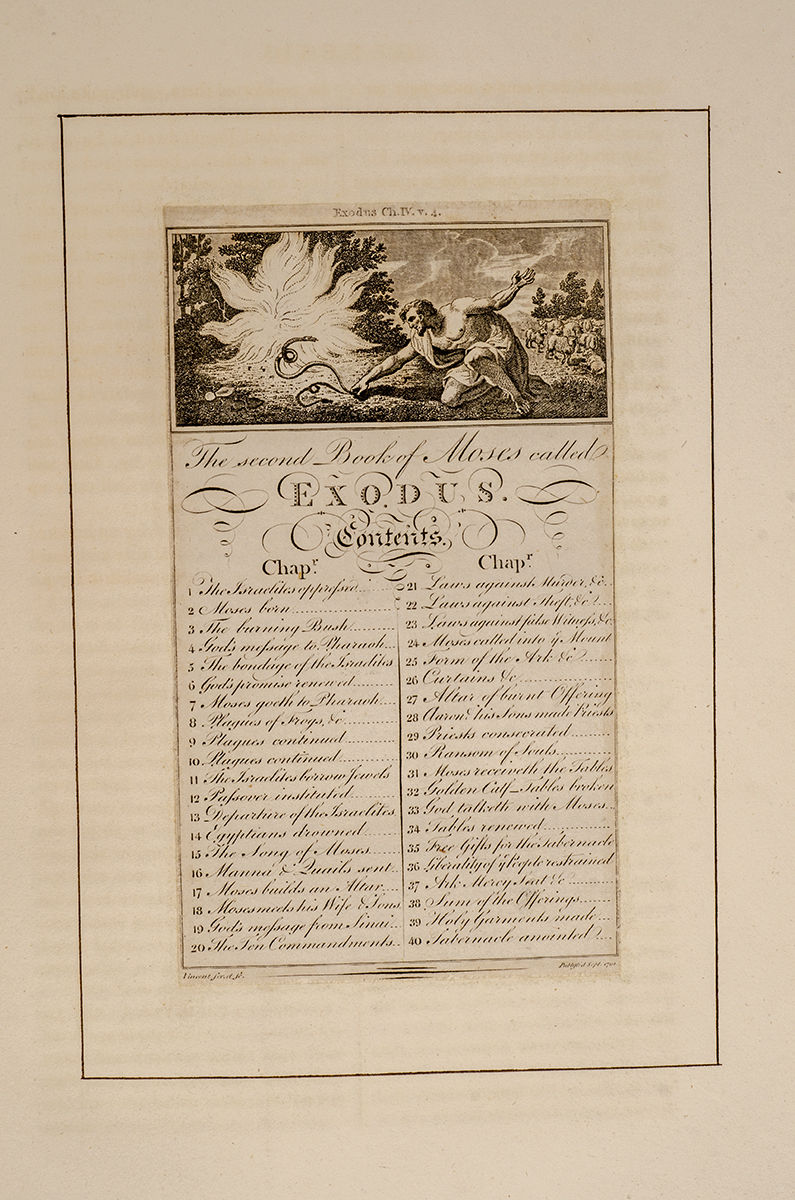 Exodus Ch.IV. v. 4.
The second Book of Moses called
EXODUS.
Contents.
Chapr.
1 The Israelites oppressed
2 Moses born
3 The burning Bush
4 God's message to Pharaoh
5 The bondage of the Israelites
6 God's promise renewed
7 Moses goeth to Pharaoh
8 Plagues of Frogs, &c
9 Plagues continued
10 Plagues continued
11 The Israelites borrow Jewels
12 Passover instituted
13 Departure of the Israelites
14 Egyptians drowned
15 The Song of Moses
16 Manna & Quails sent
17 Moses builds an Altar
18 Moses meets his Wife & Sons
19 God's message from Sinai
20 The Ten Commandments
Chapr
21 Laws against Murder, &c.
22 Laws against Theft, &c
23 Laws against false Witness, &c
24 Moses called into ye Mount
25 Form of the Ark &c
26 Curtains &c
27 Altar of burnt Offering
28 Aaron & his Sons made Priests
29 Priests consecrated
30 Ransom of Souls
31 Moses receiveth the Tables
32 Golden Calf_Tables broken
33 God talketh with Moses
34 Tables renewed
35 Free Gifts for the Tabernacle
36 Liberality of ye People restrained
37 Ark Mercy Seat &c
38 Sum of the Offerings
39 Holy Garments made
40 Tabernacle anointed
Vincent
Publish'd Sept.